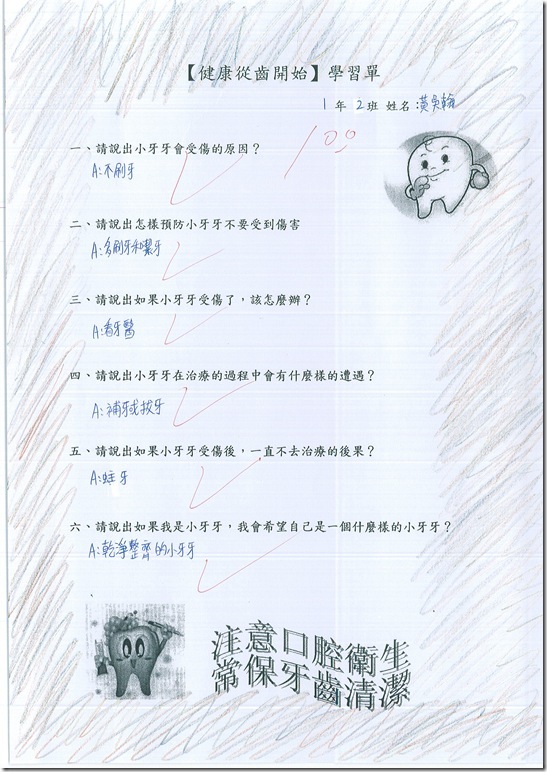 【健康從齒開始】學習單
1 年 2 班 姓名：黃奐翰
100
一、請說出小牙牙會受傷的原因？
A:不刷牙
二、請說出怎樣預防小牙牙不要受到傷害
A:多刷牙和潔牙
三、請說出如果小牙牙受傷了，該怎麼辦？
A:看牙醫
四、請說出小牙牙在治療的過程中會有什麼樣的遭遇？
A:補牙或拔牙
五、請說出如果小牙牙受傷後，一直不去治療的後果？
A:蛀牙
六、請說出如果我是小牙牙，我會希望自己是一個什麼樣的小牙牙？
A:乾淨整齊的小牙牙
注意口腔衛生
常保牙齒清潔